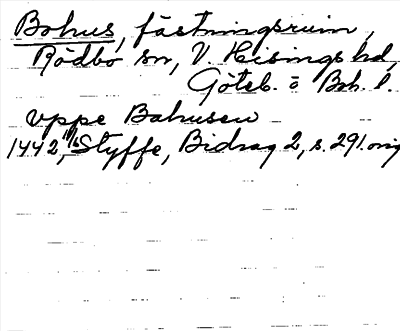 Bohus, fästningsruin,
Rödbo sn, V. Hisings hd,
Göteb. o Boh. l.
uppe Bahusen
1442 1/6, Styffe, Bidrag 2, s. 291. orig